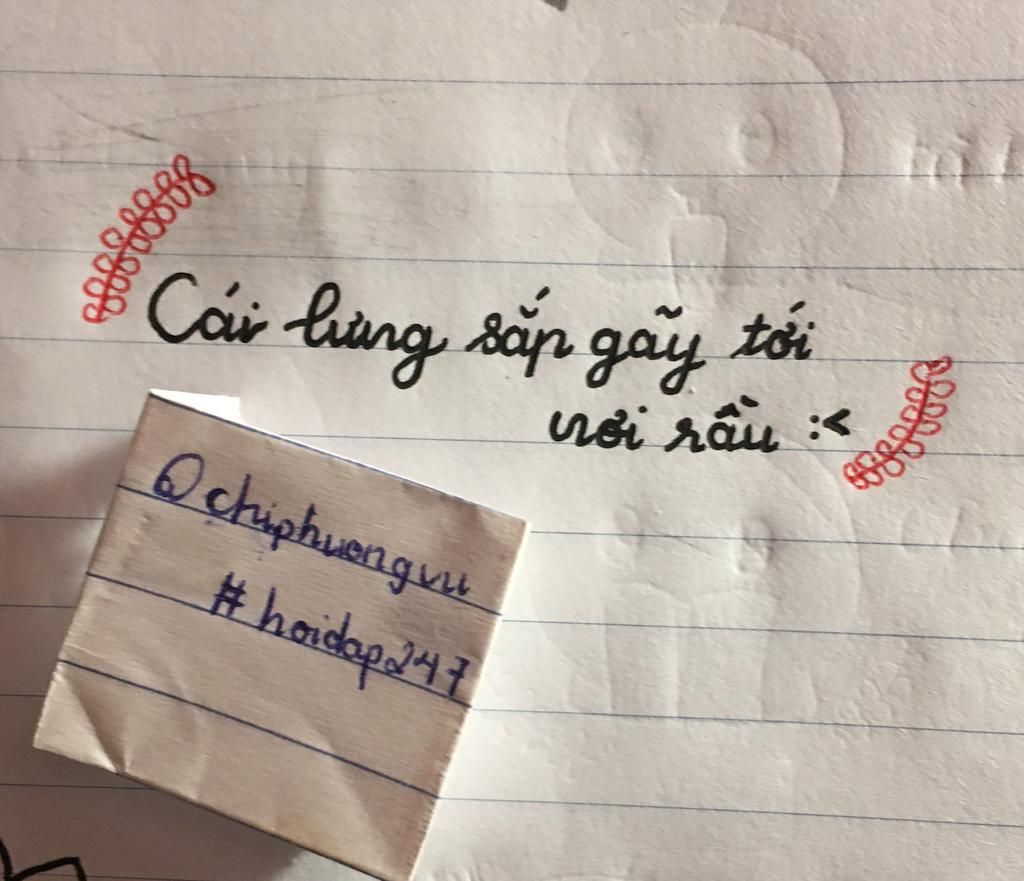 Cái lưng sắp gãy tới
nơi rầu :<
@chiphuongvu
#hoidap247